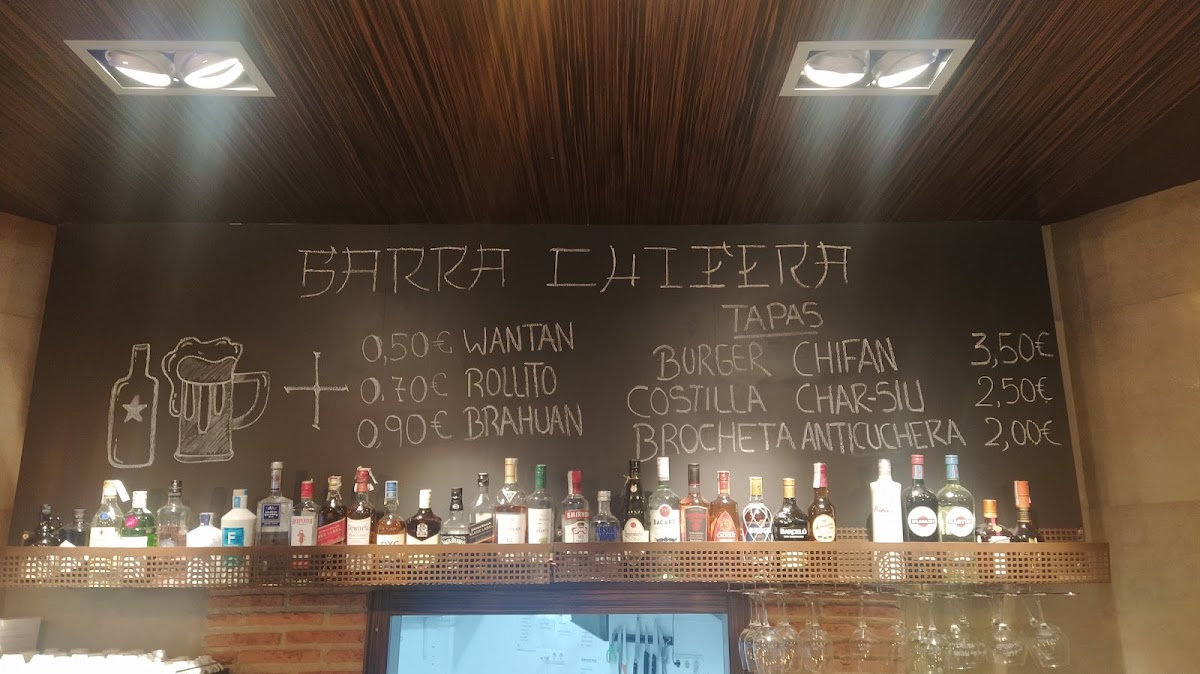 BARRA CHIFERA
0,50€ WANTAN
0,70€ ROLLITO
0,90€ BRAHUAN
TAPAS
BURGER CHIFAN 3,50€
COSTILLA CHAR-SIU 2,50€
BROCHETA ANTICUCHERA 2,00€
BARCELÓ